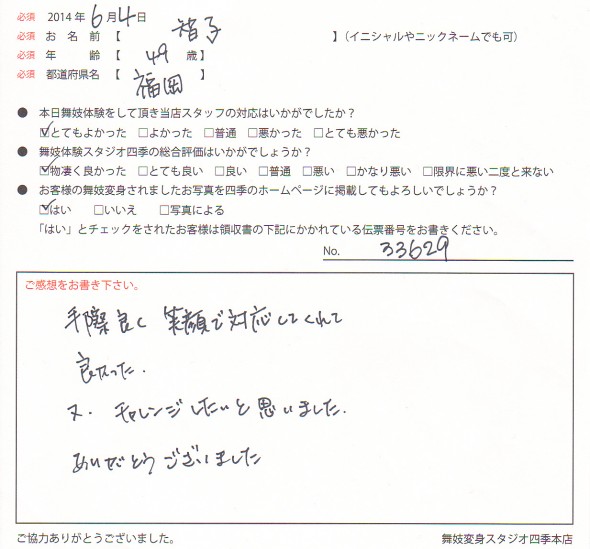 必須 2014年6月4日
必須 お名前【 智子 】(イニシャルやニックネームでも可)
必須 年齢【 49 歳】
必須 都道府県名【 福岡 】
● 本日舞妓体験をして頂き当店スタッフの対応はいかがでしたか?
☑とてもよかった □よかった □普通 □悪かった □とても悪かった
● 舞妓体験スタジオ四季の総合評価はいかがでしょうか?
☑物凄く良かった □とても良い □良い □普通 □悪い □かなり悪い □限界に悪い二度と来ない
● お客様の舞妓変身されましたお写真を四季のホームページに掲載してもよろしいでしょうか?
☑はい □いいえ □写真による
「はい」とチェックをされたお客様は領収書の下記にかかれている伝票番号をお書きください。
No. 33629
ご感想をお書き下さい。
手際良く 笑顔で対応してくれて
良かった.
又. チャレンジしたいと思いました.
ありがとうございました
ご協力ありがとうございました。 舞妓変身スタジオ四季本店